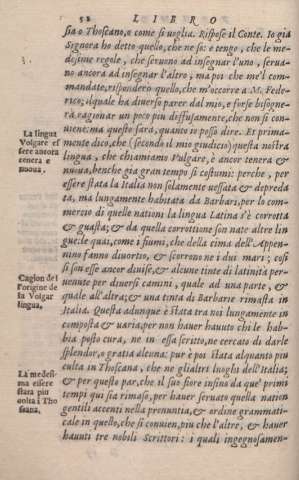 52 LIBRO
sia o Thoscano, o come si voglia. Rispose il Conte. Io già
Signora ho detto quello, che ne so: e tengo, che le me-
desime regole, che seruono ad insegnar l'uno, serua-
no ancora ad insegnar l'altro, ma poi che me'l com-
mandate, risponderò quello, che m'occorre a M. Fede-
rico; ilquale ha diuerso parer dal mio, e forse bisogne-
rà ragionar un poco piu diffusamente, che non si con-
uiene: ma questo sarà, quanto io posso dire. Et prima-
La lingua
Volgare es
sere ancora
tenera e
nuoua.
mente dico, che (secondo il mio giudicio) questa nostra
lingua, che chiamiamo Vulgare, è ancor tenera &
nuoua, benche già gran tempo si costumi: perche, per
essere stata la Italia non solamente uessata & depreda
ta, ma lungamente habitata da Barbari, per lo com-
mercio di quelle nationi la lingua Latina s'è corrotta
& guasta; & da quella corrottione son nate altre lin
gue: le quai, come i fiumi, che della cima dell'Appen-
nino fanno diuortio, & scorrono ne i due mari; cosi
si son esse ancor diuise, & alcune tinte di latinità per-
Cagion del
l'origine de
la Volgar
lingua.
uenute per diuersi camini, quale ad una parte, &
quale all'altra; & una tinta di Barbarie rimasta in
Italia. Questa adunque è stata tra noi lungamente in
composta & uaria, per non hauer hauuto chi le hab-
bia posto cura, ne in essa scritto, ne cercato di darle
splendor, o gratia alcuna: pur è poi stata alquanto piu
culta in Thoscana, che ne glialtri luoghi dell'Italia;
La medesi
ma essere
stata piu
colta i Tho
scana,
& per questo par, che il suo fiore insino da que' primi
tempi qui sia rimaso, per hauer seruato quella nation
gentili accenti nella pronuntia, & ordine grammati-
cale in quello, che si conuien, piu che l'altre, & hauer
hauuti tre nobili Scrittori: i quali ingegnosamen-